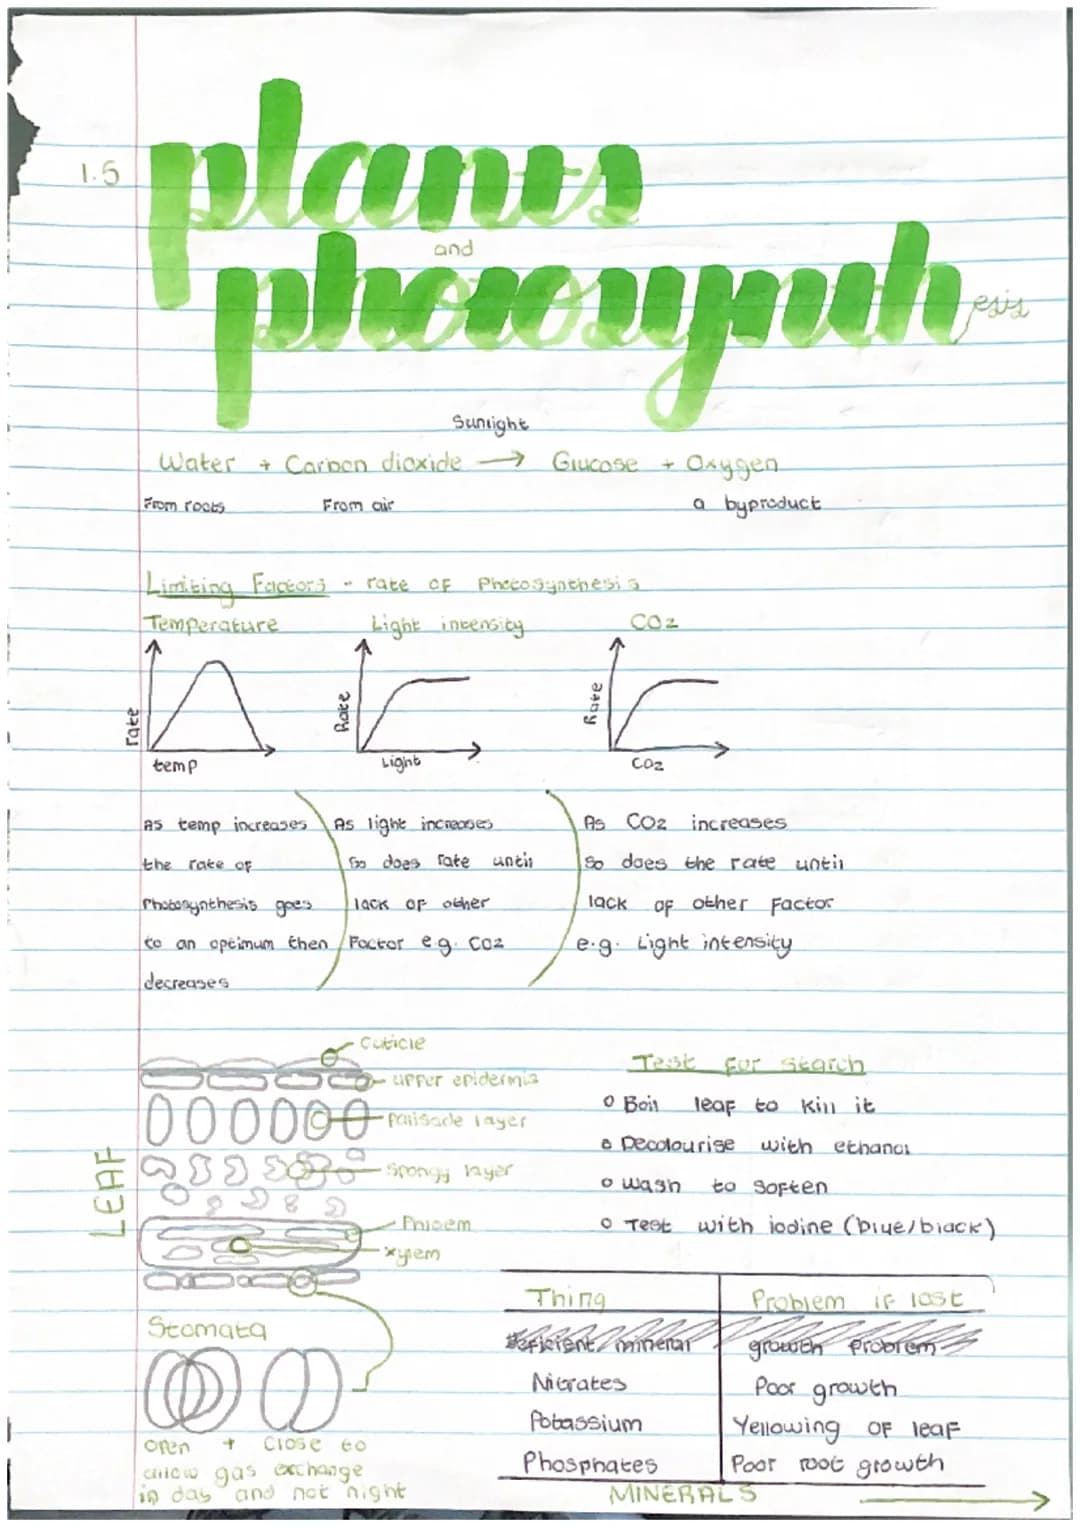 1.5
plants
and
photosynthesis
Sunlight
Water + Carbon dioxide → Glucose + Oxygen
From roots From air a byproduct
Limiting Factors - rate of Photosynthesis
Temperature Light intensity CO2
rate Rate Rate
temp Light CO2
As temp increases
the rate of
Photosynthesis goes
to an optimum then
decreases
As light increases
so does rate until
lack of other
Factor e.g. CO2
As CO2 increases
so does the rate until
lack of other Factor
e.g. Light intensity
LEAF
Cuticle
upper epidermis
Palisade layer
Spongy layer
Phloem
xylem
Stomata
Open + Close to
allow gas exchange
in day and not night
Test for starch
Boil leaf to kill it
Decolourise with ethanol
wash to soften
Test with iodine (blue/black)
Thing Problem if lost
deficient mineral growth problem
Nitrates Poor growth
Potassium Yellowing of leaf
Phosphates Poor root growth
MINERALS →